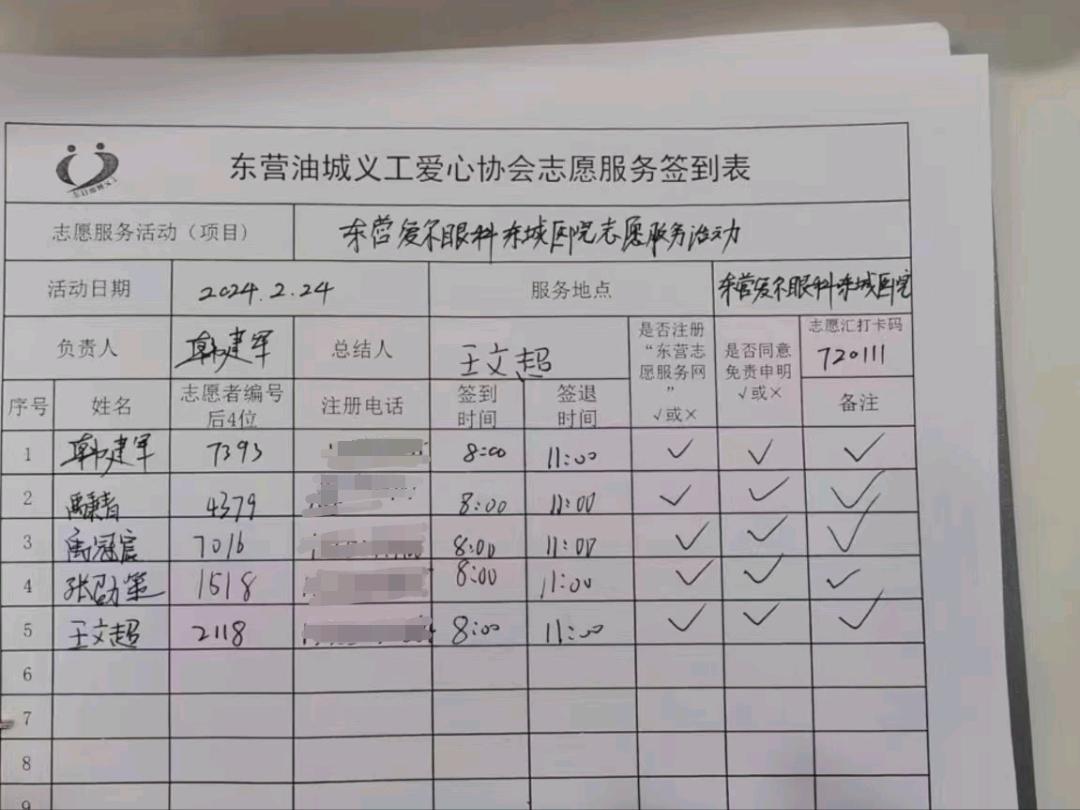 东营油城义工爱心协会志愿服务签到表
志愿服务活动（项目） 东营爱尔眼科东城医院志愿服务活动
活动日期 2024.2.24 服务地点 东营爱尔眼科东城医院
负责人 韩建军 总结人 王文超 是否注册“东营志愿服务网”√或× 是否同意免责申明√或× 志愿汇打卡码 720111
序号 姓名 志愿者编号后4位 注册电话 签到时间 签退时间 备注
1 韩建军 7393 8:00 11:00 ✓ ✓ ✓
2 4379 8:00 11:00 ✓ ✓ ✓
3 禹冠宸 7016 8:00 11:00 ✓ ✓ ✓
4 张勋策 1518 8:00 11:00 ✓ ✓ ✓
5 王文超 2118 8:00 11:00 ✓ ✓ ✓
6
7
8
9